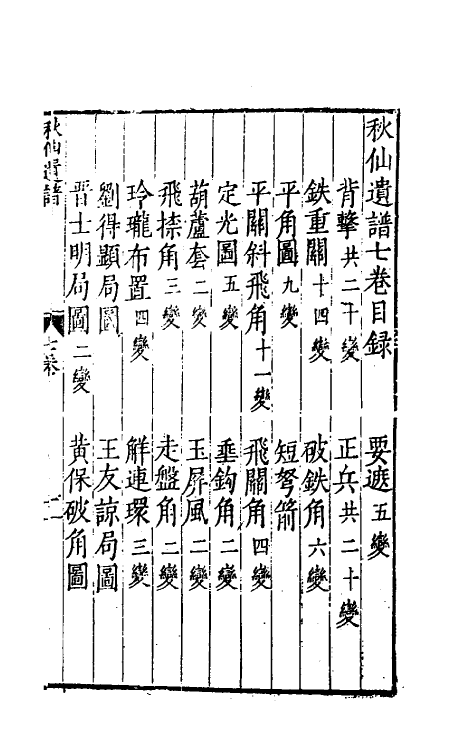 秋仙遺譜七卷目録 要遮五變
背擊共二十變 正兵共二十變
鉄重關十四變 破鉄角六變
平角圖九變 短弩箭
平關斜飛角十一變 飛關角四變
定光圖五變 垂鈎角二變
葫蘆套二變 玉屏風二變
飛捺角三變 走盤角二變
玲瓏布置四變 解連環三變
劉得顯局圖 王友諒局圖
晋士明局圖二變 黄保破角圖
秋仙遺譜 七卷 一